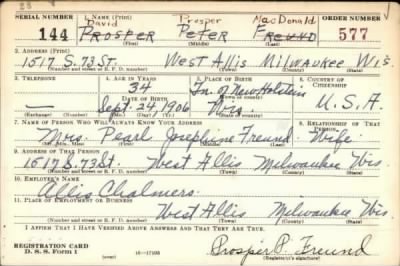 SERIAL NUMBER 1. NAME (Print) ORDER NUMBER
David Prosper MacDonald
144 PROSPER PETER FREUND 577
(First) (Middle) (Last)
2. ADDRESS (Print)
1517 S. 73 St. West Allis Milwaukee Wis
(Number and street or R. F. D. number) (Town) (County) (State)
3. TELEPHONE 4. AGE IN YEARS 5. PLACE OF BIRTH 6. COUNTRY OF CITIZENSHIP
34 Tn. of New Holstein
DATE OF BIRTH (Town or county)
— Sept. 24, 1906 Wis. U.S.A.
(Exchange) (Number) (Mo.) (Day) (Yr.) (State or country)
7. NAME OF PERSON WHO WILL ALWAYS KNOW YOUR ADDRESS 8. RELATIONSHIP OF THAT PERSON
Mrs. Pearl Josephine Freund Wife
(Mr., Mrs., Miss) (First) (Middle) (Last)
9. ADDRESS OF THAT PERSON
1517 S. 73 St. West Allis Milwaukee Wis.
(Number and street or R. F. D. number) (Town) (County) (State)
10. EMPLOYER'S NAME
Allis Chalmers.
11. PLACE OF EMPLOYMENT OR BUSINESS
West Allis Milwaukee Wis.
(Number and street or R. F. D. number) (Town) (County) (State)
I AFFIRM THAT I HAVE VERIFIED ABOVE ANSWERS AND THAT THEY ARE TRUE.
REGISTRATION CARD
D. S. S. Form 1 (over) 16—17105 Prosper P. Freund
(Registrant's signature)